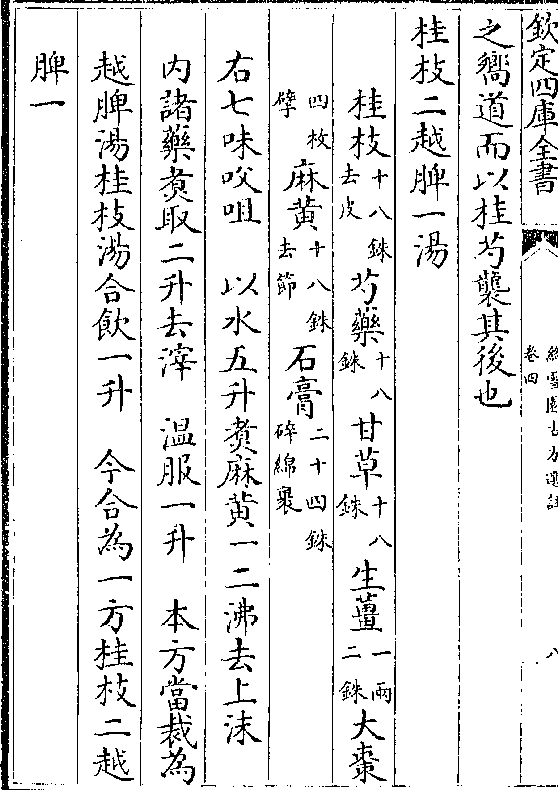 欽定四庫全書
絳雪園古方選註
卷四
八
之嚮道而以桂芍襲其後也
桂枝二越脾一湯
桂枝十八銖去皮 芍藥十八銖 甘草十八銖 生薑一兩二銖 大棗
四枚擘 麻黃十八銖去節 石膏二十四銖碎綿裹
右七味㕮咀 以水五升煑麻黃一二沸去上沫
内諸藥煑取二升去滓 温服一升 本方當裁為
越脾湯桂枝湯合飲一升 今合為一方桂枝二越
脾一